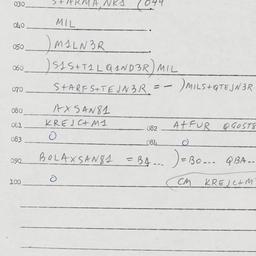 030 S+ARMA,NK1 (044
040 MIL
050 )M1LN3R
060 )S1S+T1LQ1ND3R)MIL
070 S+ARFS+TEJN3R = - )MILS+QTEJN3R
080 AXSAN81
081 KREJC+M1 082 A+FUR QGOST8
083 0 084 0
090 BOLAXSAN81 = BA... )=BO... QBA..
100 0 CM KREJC+M